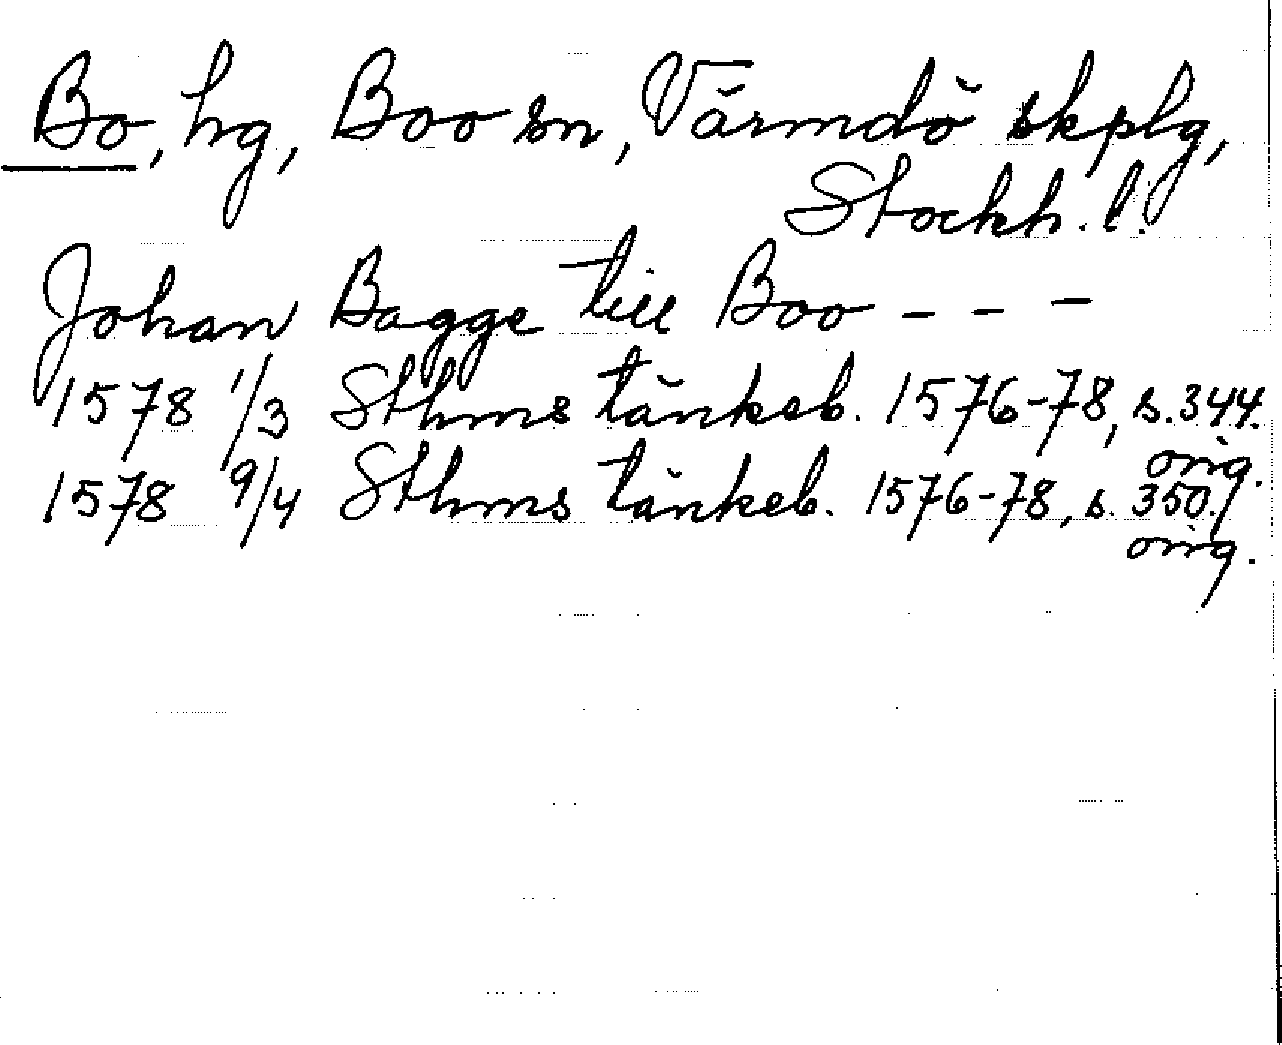 Bo, hg, Boo sn, Värmdö skplg,
Stockh. l.
Johan Bagge till Boo - - -
1578 1/3 Sthms tänkeb. 1576-78, s. 344.
orig.
1578 9/4 Sthms tänkeb. 1576-78, s. 350.
orig.